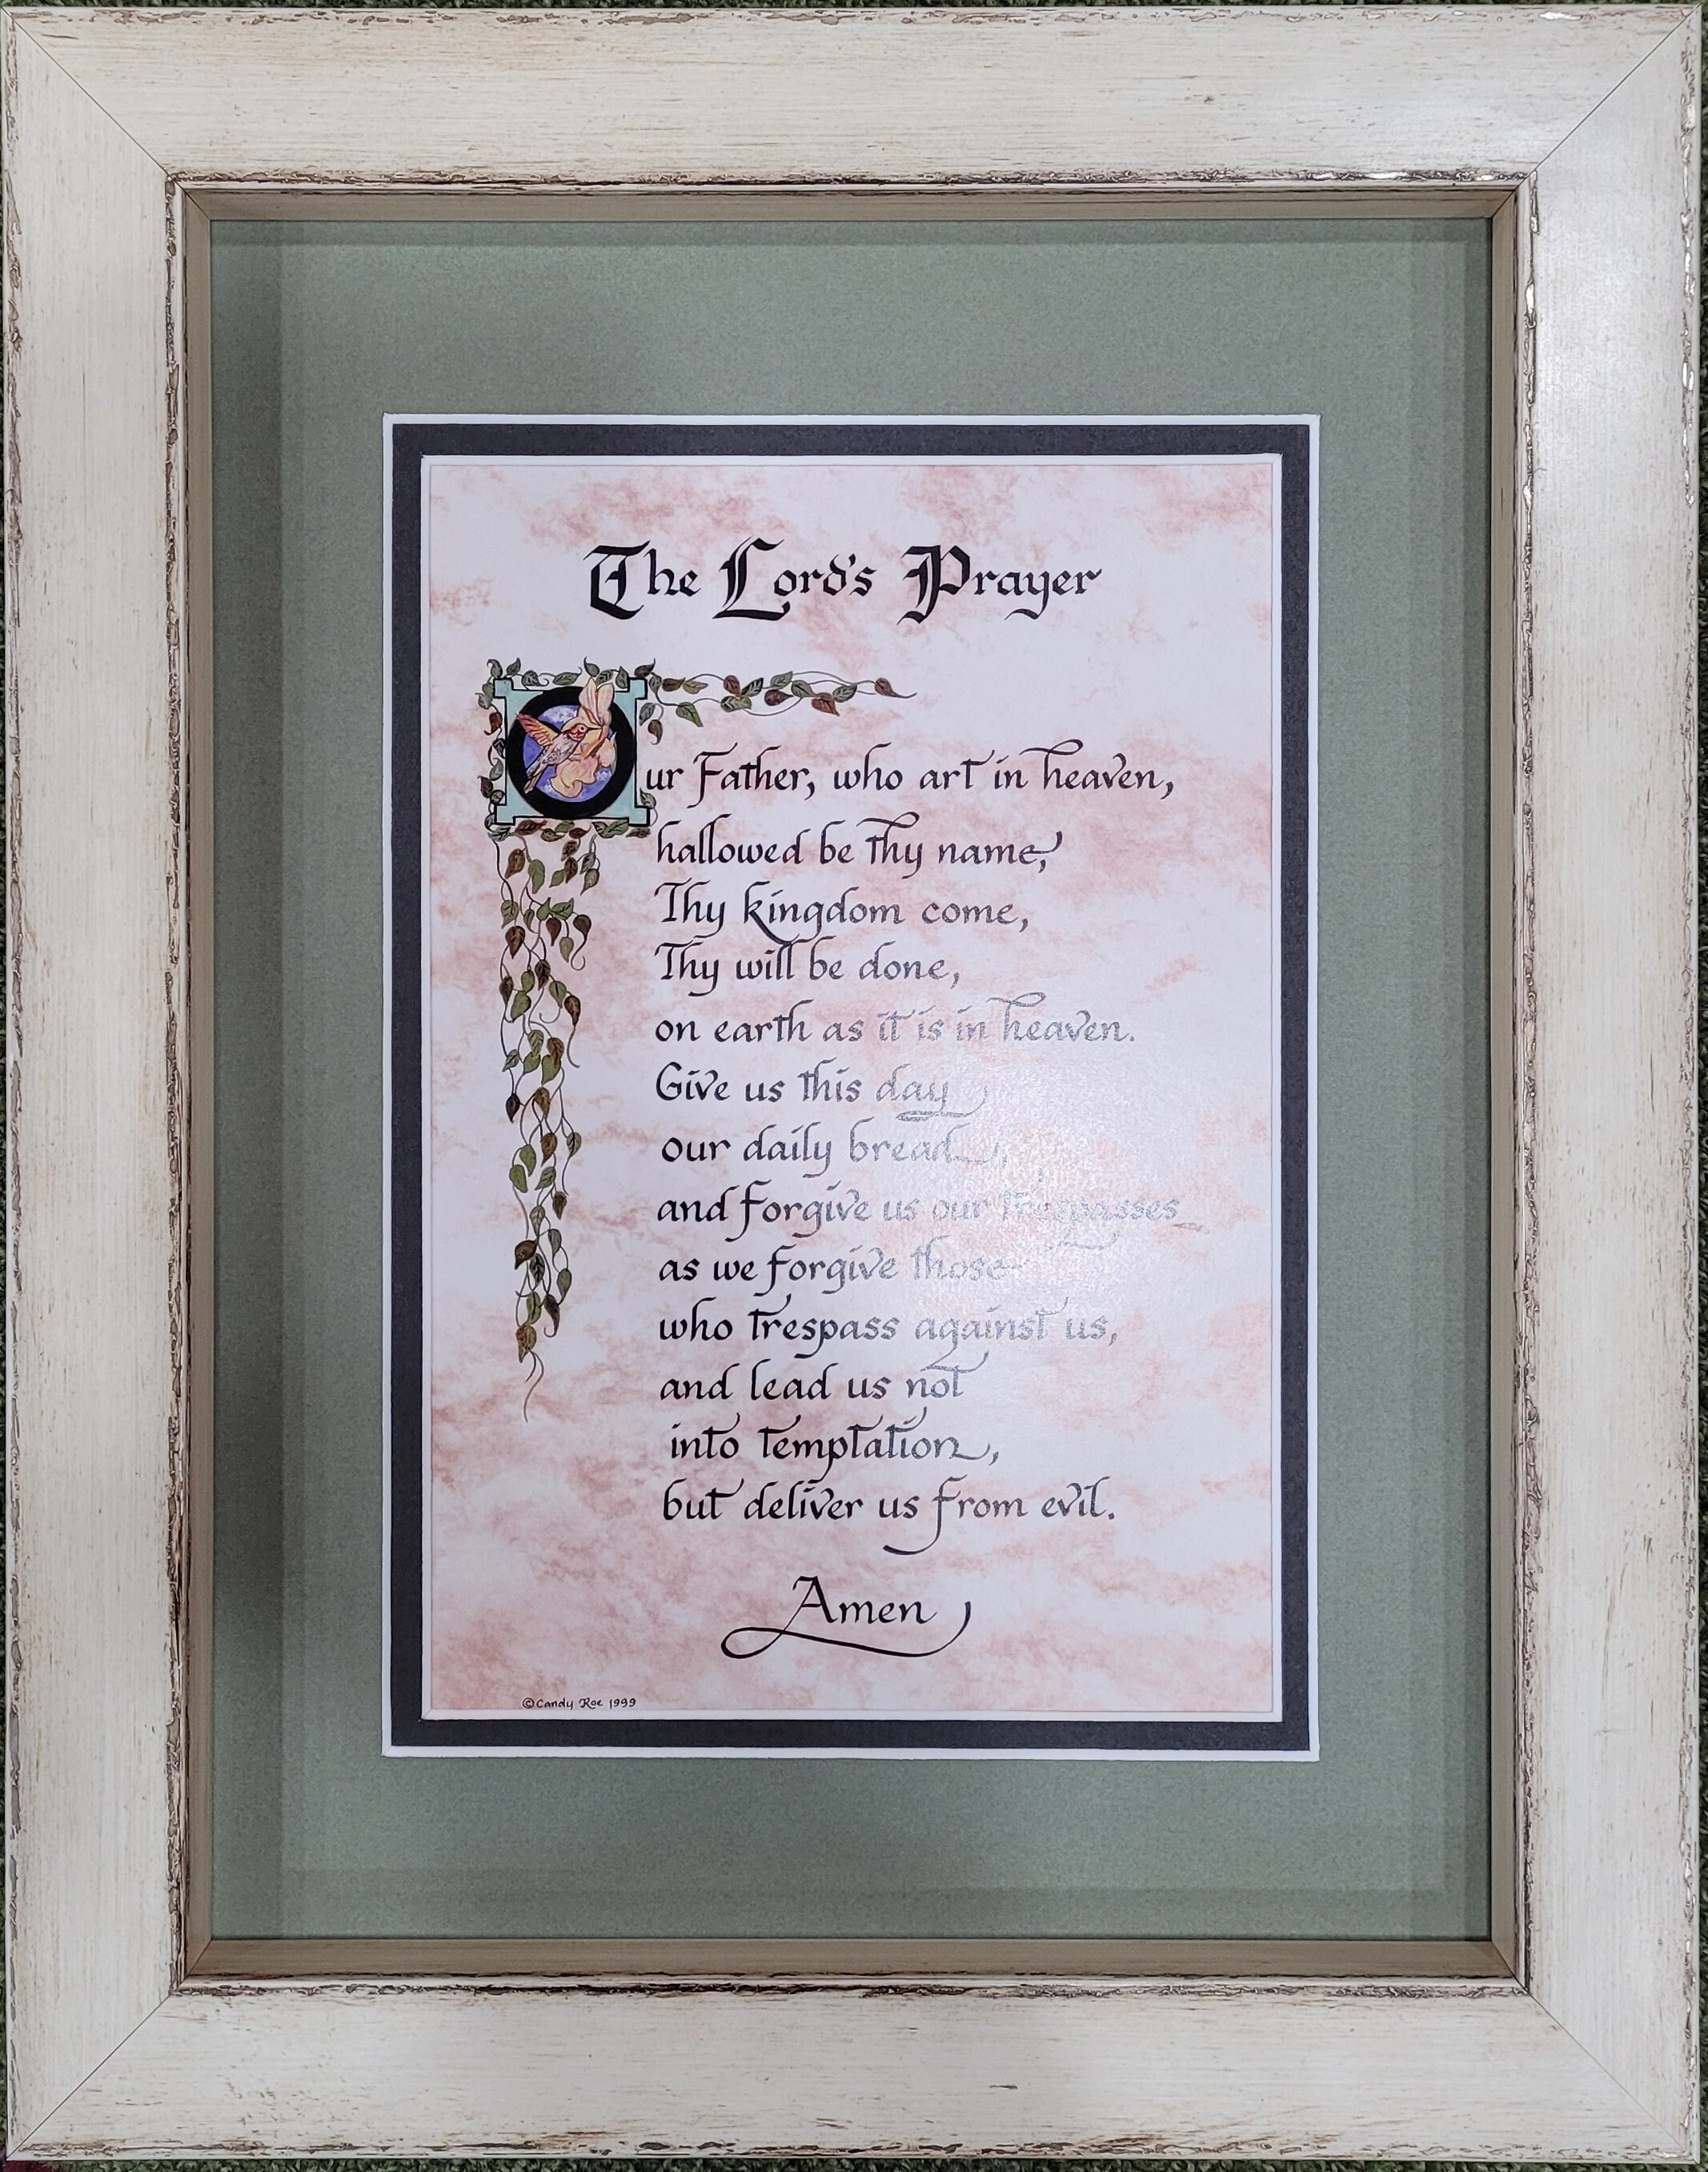 The Lord's Prayer
Our Father, who art in heaven,
hallowed be thy name,
Thy kingdom come,
Thy will be done,
on earth as it is in heaven.
Give us this day
our daily bread,
and forgive us our trespasses
as we forgive those
who trespass against us,
and lead us not
into temptation,
but deliver us from evil.
Amen
©Candy Roe 1999